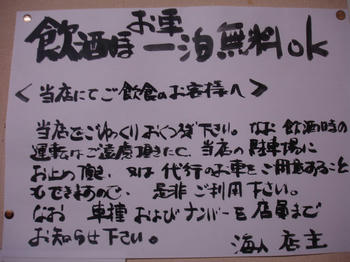 飲酒ほお車一泊無料ok
<当店にてご飲食のお客様へ>
当店でごゆっくりおくつろぎ下さい。なお飲酒時の
運転はご遠慮頂きたく、当店の駐車場に
お止め頂き、又は代行のお車をご用意すること
もできますので、是非ご利用下さい。
なお 車種およびナンバーを店員まで
お知らせ下さい。
海人 店主